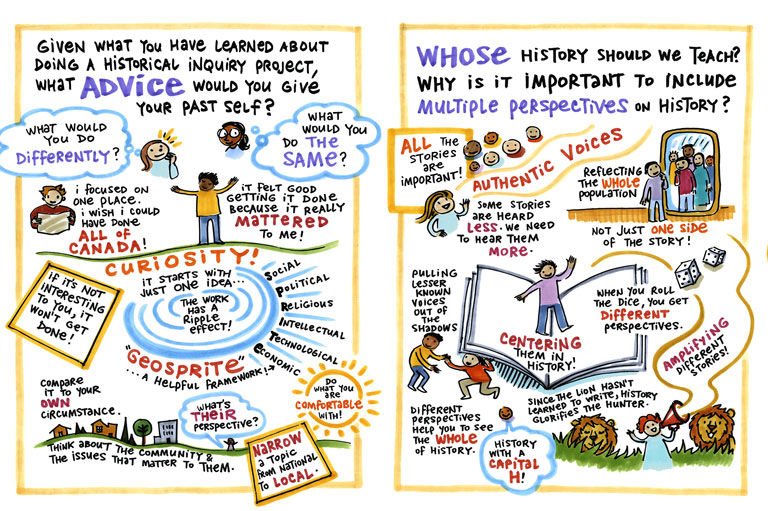 GIVEN WHAT YOU HAVE LEARNED ABOUT
DOING A HISTORICAL INQUIRY PROJECT,
WHAT ADVICE WOULD YOU GIVE
YOUR PAST SELF?
WHAT WOULD
YOU DO
DIFFERENTLY?
WHAT
WOULD YOU
DO THE
SAME?
I FOCUSED ON
ONE PLACE.
I WISH I COULD
HAVE DONE
ALL OF
CANADA!
IT FELT GOOD
GETTING IT DONE
BECAUSE IT REALLY
MATTERED
TO ME!
CURIOSITY!
IT STARTS WITH
JUST ONE IDEA...
THE WORK
HAS A
RIPPLE
EFFECT!
SOCIAL
POLITICAL
RELIGIOUS
INTELLECTUAL
TECHNOLOGICAL
ECONOMIC
"GEOSPRITE"
...A HELPFUL FRAMEWORK!
IF IT'S NOT
INTERESTING
TO YOU, IT
WON'T GET
DONE!
COMPARE
IT TO YOUR
OWN
CIRCUMSTANCE.
WHAT'S
THEIR
PERSPECTIVE?
DO
WHAT YOU
ARE
COMFORTABLE
WITH!
THINK ABOUT THE COMMUNITY &
THE ISSUES THAT MATTER TO THEM.
NARROW
A TOPIC
FROM NATIONAL
TO LOCAL.
WHOSE HISTORY SHOULD WE TEACH?
WHY IS IT IMPORTANT TO INCLUDE
MULTIPLE PERSPECTIVES ON HISTORY?
ALL THE
STORIES
ARE
IMPORTANT!
AUTHENTIC VOICES
REFLECTING
THE WHOLE
POPULATION
SOME STORIES
ARE HEARD
LESS. WE NEED
TO HEAR THEM
MORE.
NOT JUST ONE SIDE
OF THE STORY!
PULLING
LESSER
KNOWN
VOICES
OUT OF
THE
SHADOWS
CENTERING
THEM IN
HISTORY!
WHEN YOU ROLL
THE DICE, YOU GET
DIFFERENT
PERSPECTIVES.
AMPLIFYING
DIFFERENT
STORIES!
DIFFERENT
PERSPECTIVES
HELP YOU TO SEE
THE WHOLE
OF HISTORY.
SINCE THE LION HASN'T
LEARNED TO WRITE, HISTORY
GLORIFIES THE HUNTER.
HISTORY
WITH A
CAPITAL
H!